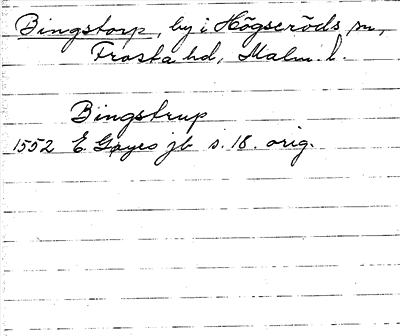 Bingstorp, by i Högseröds sn,
Frosta hd, Malm. l.
Bingstrup
1552 E Gøyes jb s. 18. orig.